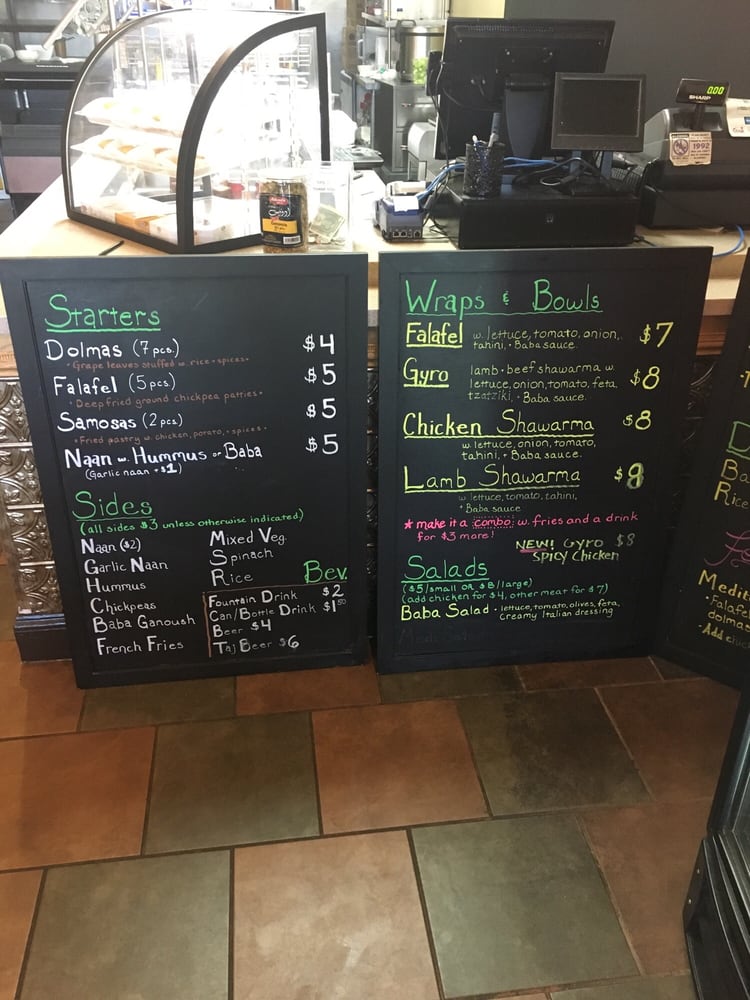 SHARP
0.00
1992
Starters
Dolmas (7 pcs.) $4
• Grape leaves stuffed w. rice + spices •
Falafel (5 pcs) $5
• Deep fried ground chickpea patties •
Samosas (2 pcs) $5
• Fried pastry w. chicken, potato, + spices •
Naan w. Hummus or Baba $5
(Garlic naan +$1)
Sides
(all sides $3 unless otherwise indicated)
Naan ($2)
Garlic Naan
Hummus
Chickpeas
Baba Ganoush
French Fries
Mixed Veg.
Spinach
Rice
Bev.
Fountain Drink $2
Can/Bottle Drink $1.50
Beer $4
Taj Beer $6
Wraps & Bowls
Falafel w. lettuce, tomato, onion, $7
tahini, + Baba sauce
Gyro lamb + beef shawarma w. $8
lettuce, onion, tomato, feta,
tzatziki, + Baba sauce
Chicken Shawarma $8
w. lettuce, onion, tomato,
tahini, + Baba sauce.
Lamb Shawarma $9
w. lettuce, tomato, tahini,
+ Baba sauce
* make it a combo w. fries and a drink
for $3 more!
NEW! Gyro $8
Spicy Chicken
Salads
($5/small or $8/large)
(add chicken for $4, other meat for $7)
Baba Salad • lettuce, tomato, olives, feta,
creamy Italian dressing
D
Ba
Rice
Medit
• Falafel
dolma
• Add chic